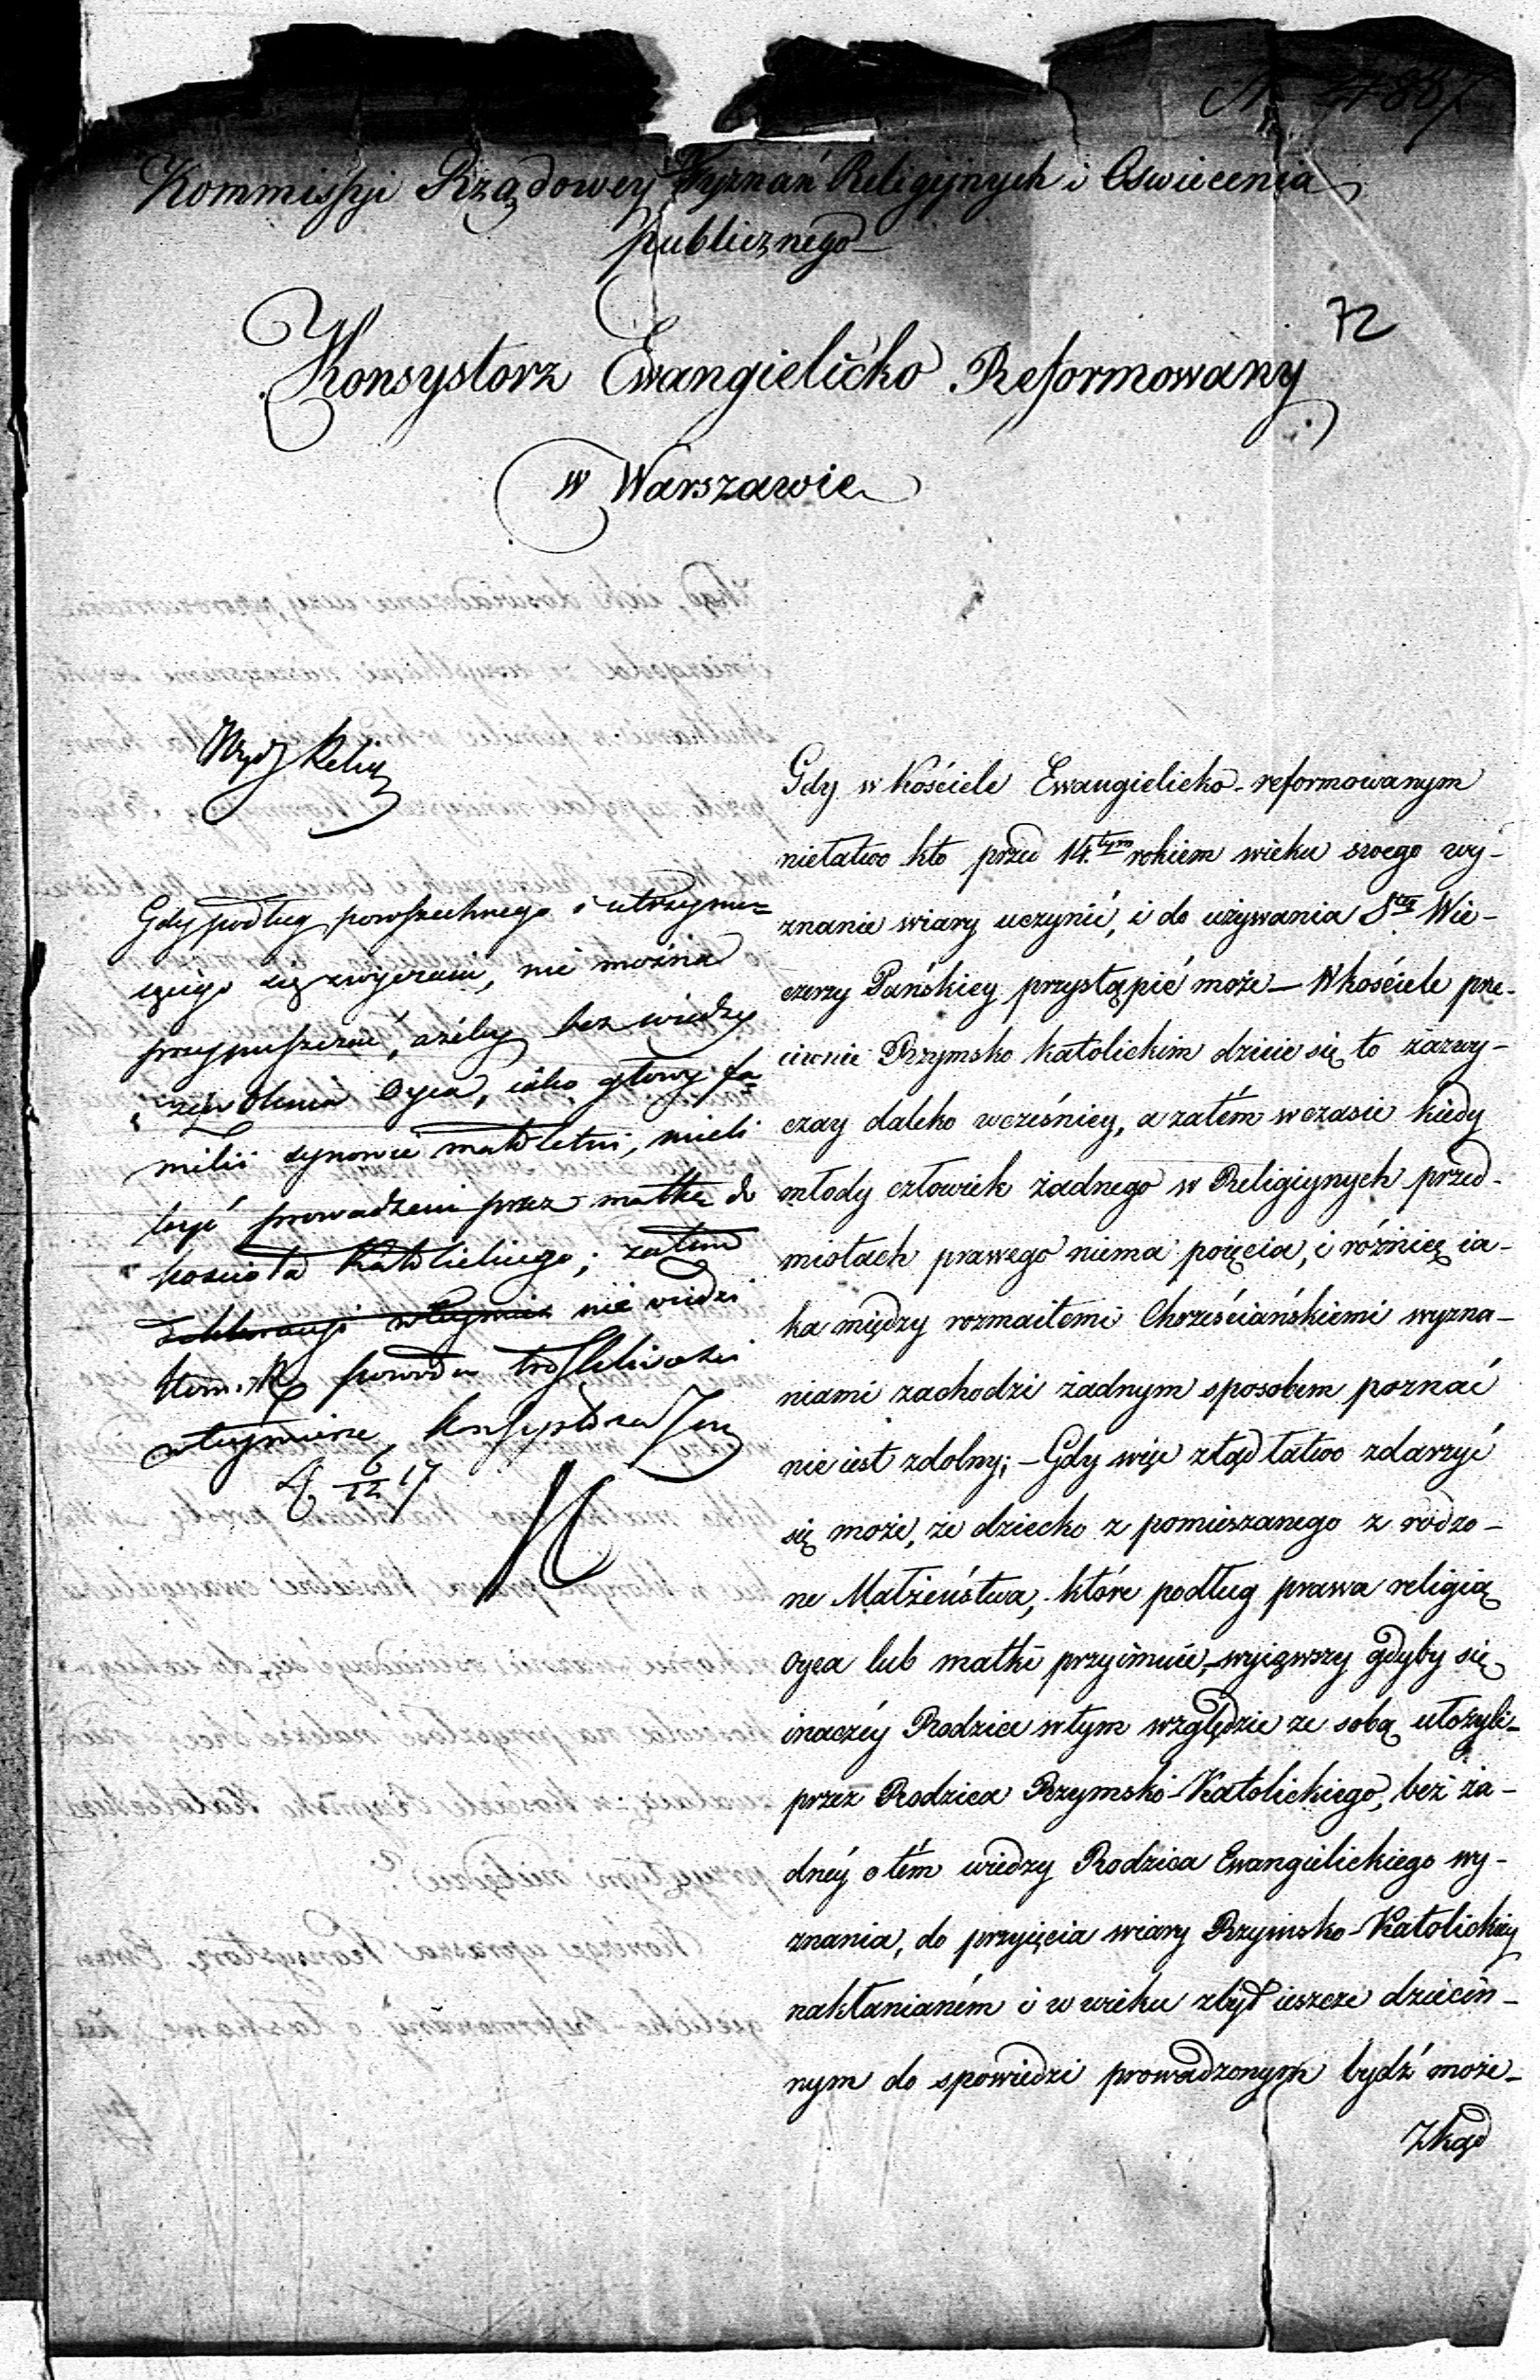 Kommissyi Rządowey Wyznań Religijnych i Oswiecenia
publicznego
72
Konsystorz Ewangielicko Reformowany
w Warszawie
Gdy podług powszechnego i utrzymu=
iącego się zwyczaiu, nie można
przypuszczać, ażeby bez wiedzy
i zezwolenia Oyca, iako głowy fa=
milii synowie małoletni, mieli
bydź prowadzeni przez matkę do
kościoła Katolickiego; zatem
nie widzi
powodu troskliwości
w teymierze Konsystorza
6/12 17
Gdy w Kościele Ewangielicko-reformowanym
niełatwo kto przed 14.tym rokiem wieku swego wy-
znanie wiary uczynić, i do używania S.tey Wie-
czerzy Pańskiey przystąpić może — W kościele prze-
ciwnie Rzymsko Katolickim dzieie się to zazwy-
czay daleko wcześniey, a zatém w czasie kiedy
młody człowiek żadnego w Religiynych przed-
miotach prawego niema poięcia, i różnicę ia-
ka między rozmaitemi Chrześciańskiemi wyzna-
niami zachodzi żadnym sposobem poznać
nie iest zdolny; — Gdy więc ztąd łatwo zdarzyć
się może, że dziecko z pomieszanego z rodzo-
ne Małżeństwa, które podług prawa religią
Oyca lub matki przyimuie, wyiąwszy gdyby się
inaczéy Rodzice w tym względzie ze sobą ułożyli-
przez Rodzica Rzymsko-Katolickiego, bez ża-
dnéy o tém wiedzy Rodzica Ewangielickiego wy-
znania, do przyięcia wiary Rzymsko-Katolickiey
nakłanianém i w wieku zbyt ieszcze dziecin-
nym do spowiedzi prowadzonym bydź może-
Zkąd